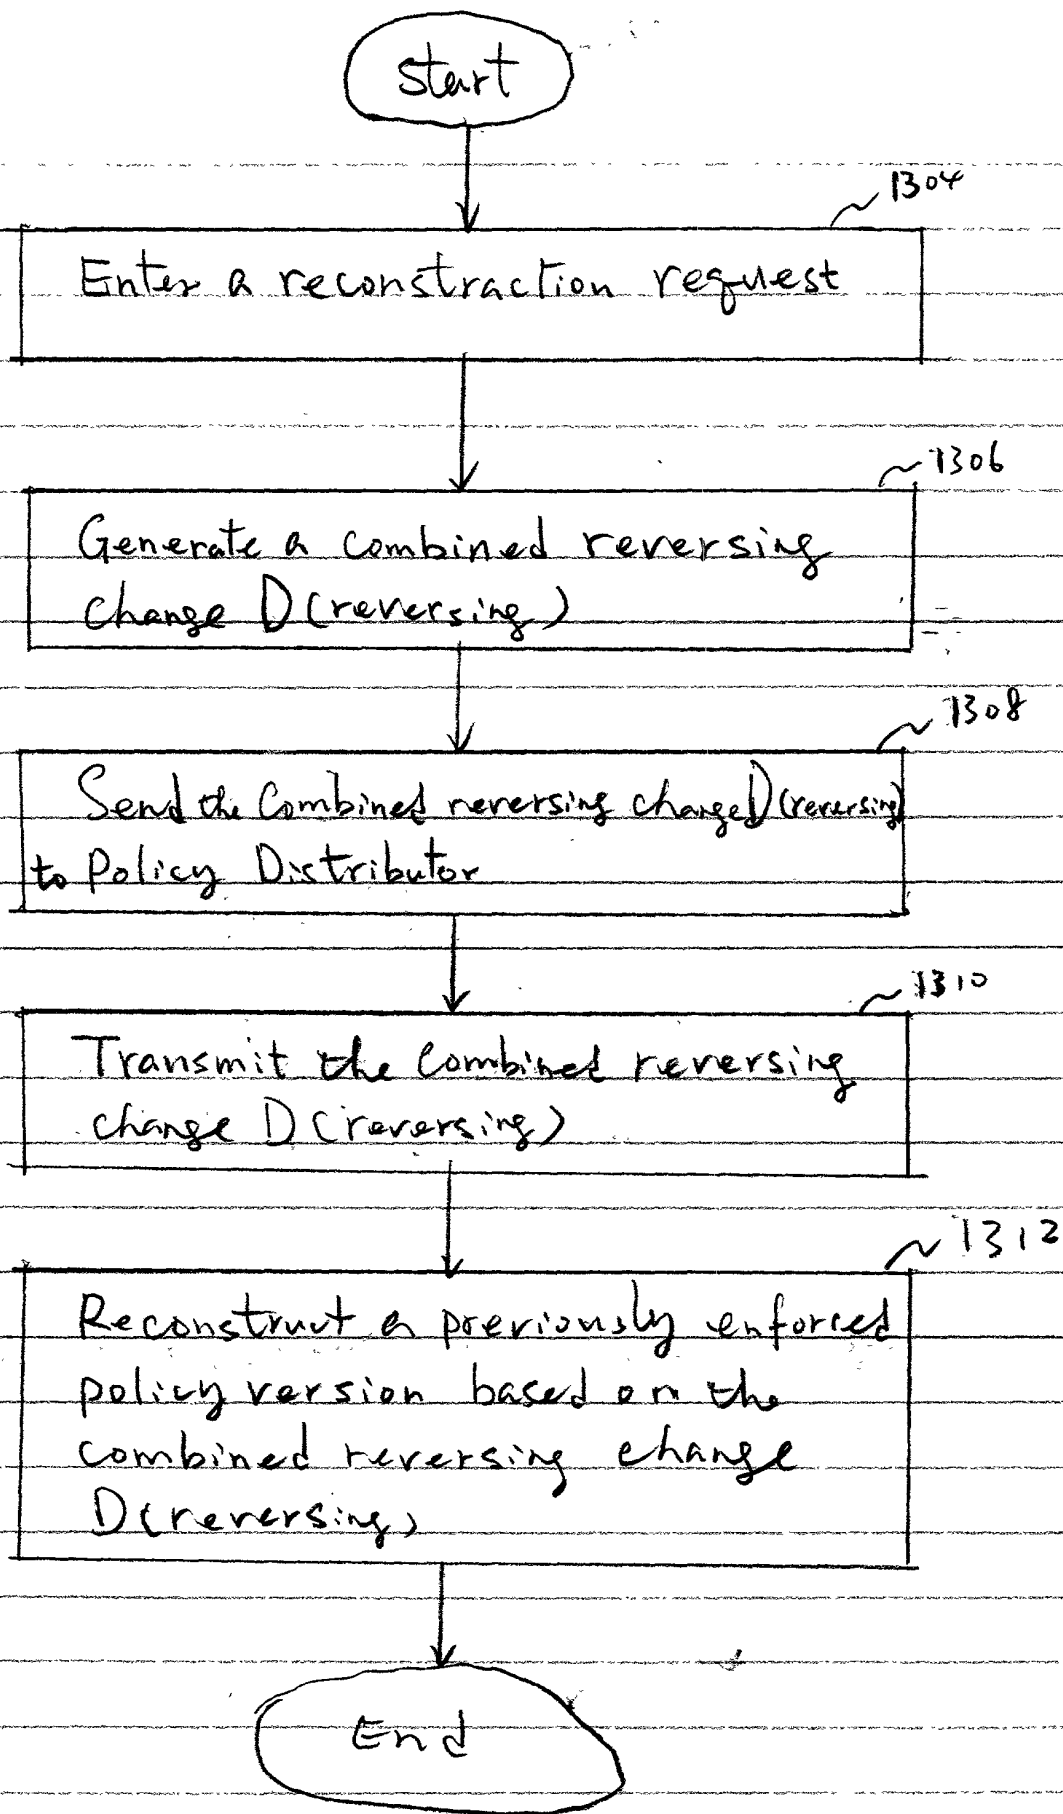 Start
1304
Enter a reconstraction request
1306
Generate a combined reversing
change D(reversing)
1308
Send the Combined reversing change D(reversing)
to Policy Distributor
1310
Transmit the Combined reversing
change D(reversing)
1312
Reconstruct a previously enforced
policy version based on the
combined reversing change
D(reversing)
End